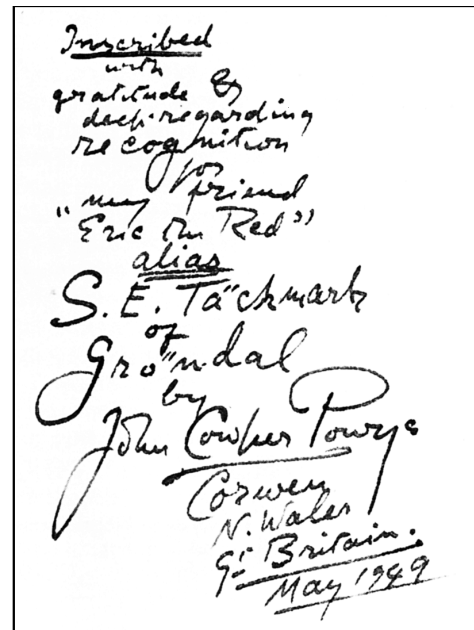 Inscribed
with
gratitude &
deep-regarding
recognition
for
"my friend
"Eric the Red"
alias
S. E. Täckmark
of
Gröndal
by
John Cowper Powys
Corwen
N. Wales
Gt Britain.
May 1949